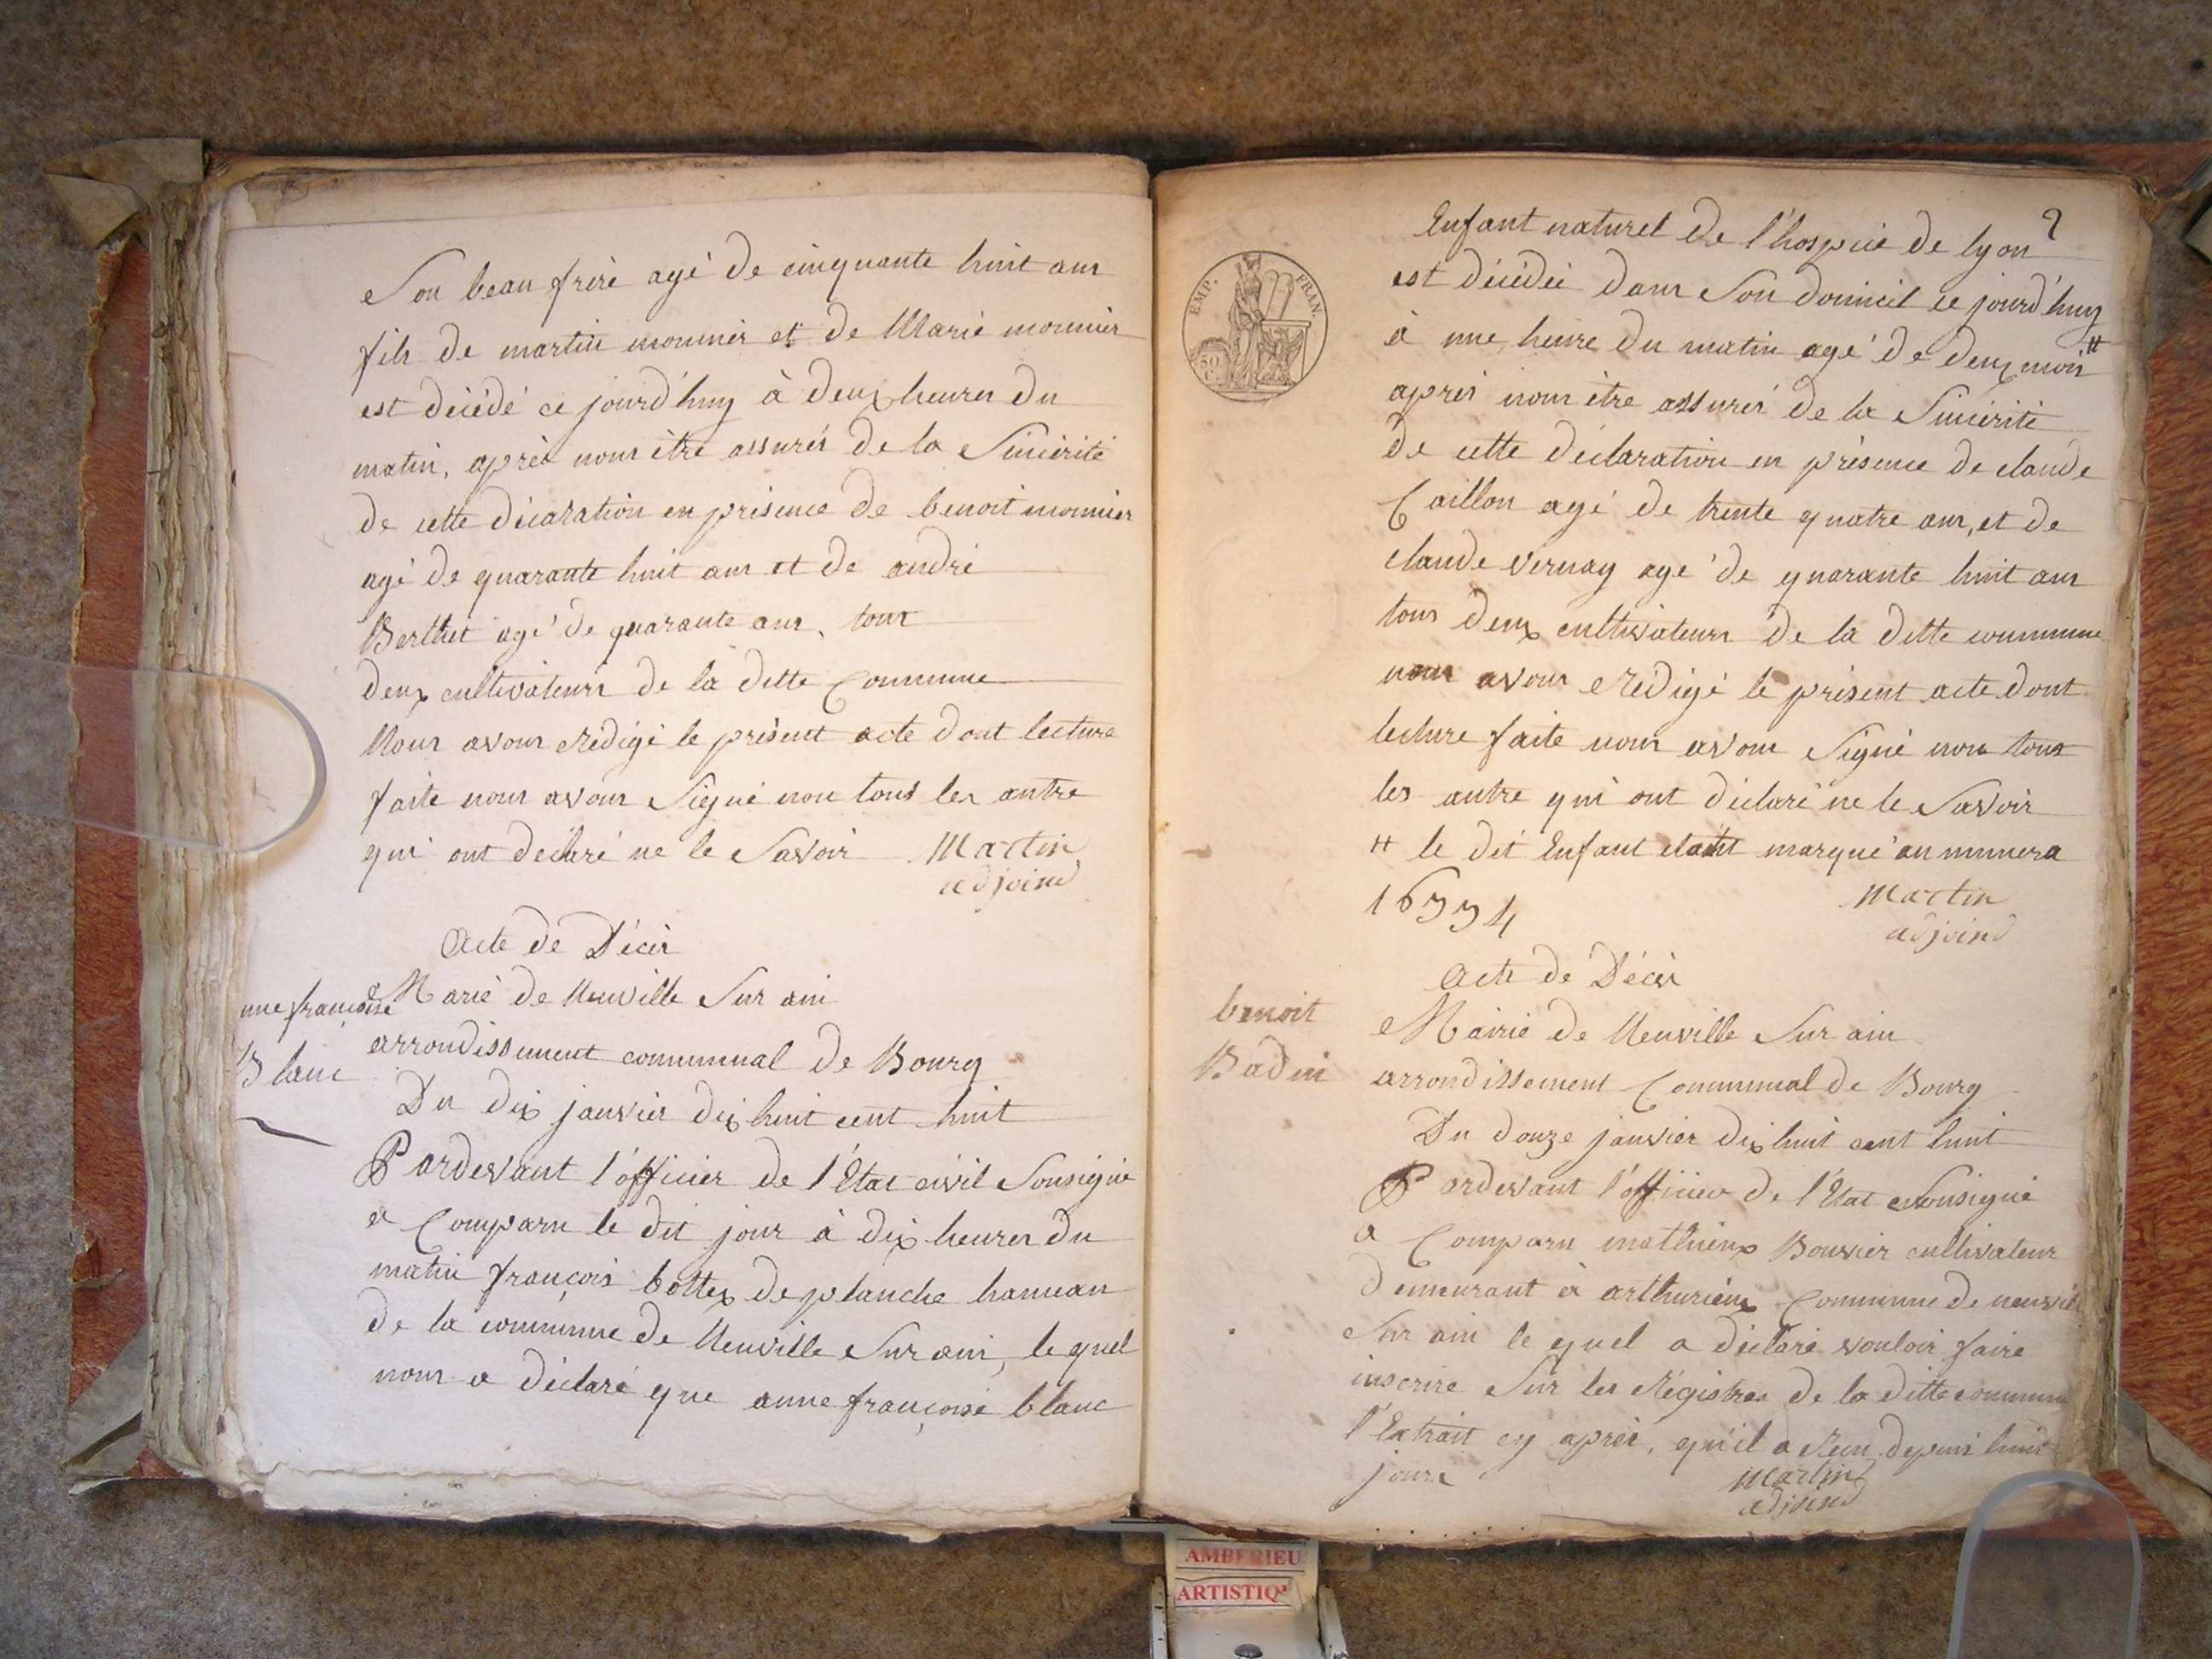 Son beau frère agé de cinquante huit ans
fils de martin monnier et de Marie monnier
est décédé ce jourd'huy à deux heures du
matin, après nous être assurés de la Sincérité
de cette décaration en présence de benoit monnier
agé de quarante huit ans et de andré
Berthet agé de quarante ans, tous
deux cultivateurs de la ditte Commune
Nous avons rédigé le présent acte dont lecture
faite nous avons Signé non tous les autre
qui ont déclaré ne le Savoir Martin
adjoind
Acte de Décès
Marie de Neuville Sur ain
nne françoise
arrondissement communal de Bourg
Blanc
Du dix janvier dix huit cent huit
Pardevant l'officier de l'Etat civil Sousigné
a Comparu le dit jour à dix heures du
matin françois bottex de planche hameau
de la commune de Neuville Sur ain, le quel
nous a déclaré que anne françoise blanc
2
Enfant naturel de l'hospice de lyon
EMP. FRAN.
50 C.
est décédée dans Son domicil ce jourd'huy
à une heure du matin agé de deux mois #
après nous être assurés de la Sincérité
de cette déclaration en présence de claude
Caillon agé de trente quatre ans, et de
claude vernay agé de quarante huit ans
tous deux cultivateurs de la ditte commune
nous avons rédigé le présent acte dont
lecture faite nous avons Signé non tous
les autre qui ont déclaré ne le Savoir
# le dit Enfant etatit marqué au numera
16334
Martin
adjoind
Acte de Décès
benoit
Badin
Mairie de Neuville Sur ain
arrondissement Communal de Bourg
Du douze janvier dix huit cent huit
Pardevant l'officier de l'Etat Sousigné
a Comparu mathieux Bouvier cultivateur
demeurant à arthurieux Commune de neuville
Sur ain le quel a déclaré vouloir faire
inscrire Sur les Régistres de la ditte commune
l'Extrait cy après, qu'il a Recu depuis huit
jours
Martin
adjoind
AMBERIEU
ARTISTIQ